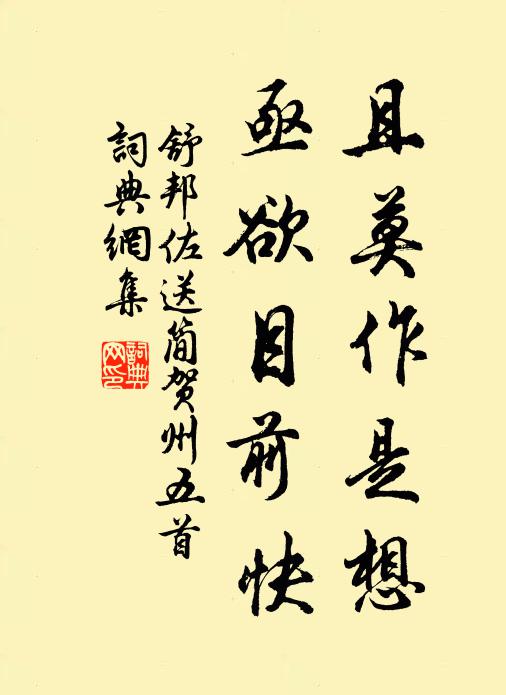 且莫作是想
亟欲目前快
舒邦佐送简贺州五首
詞典網集
詞典网印